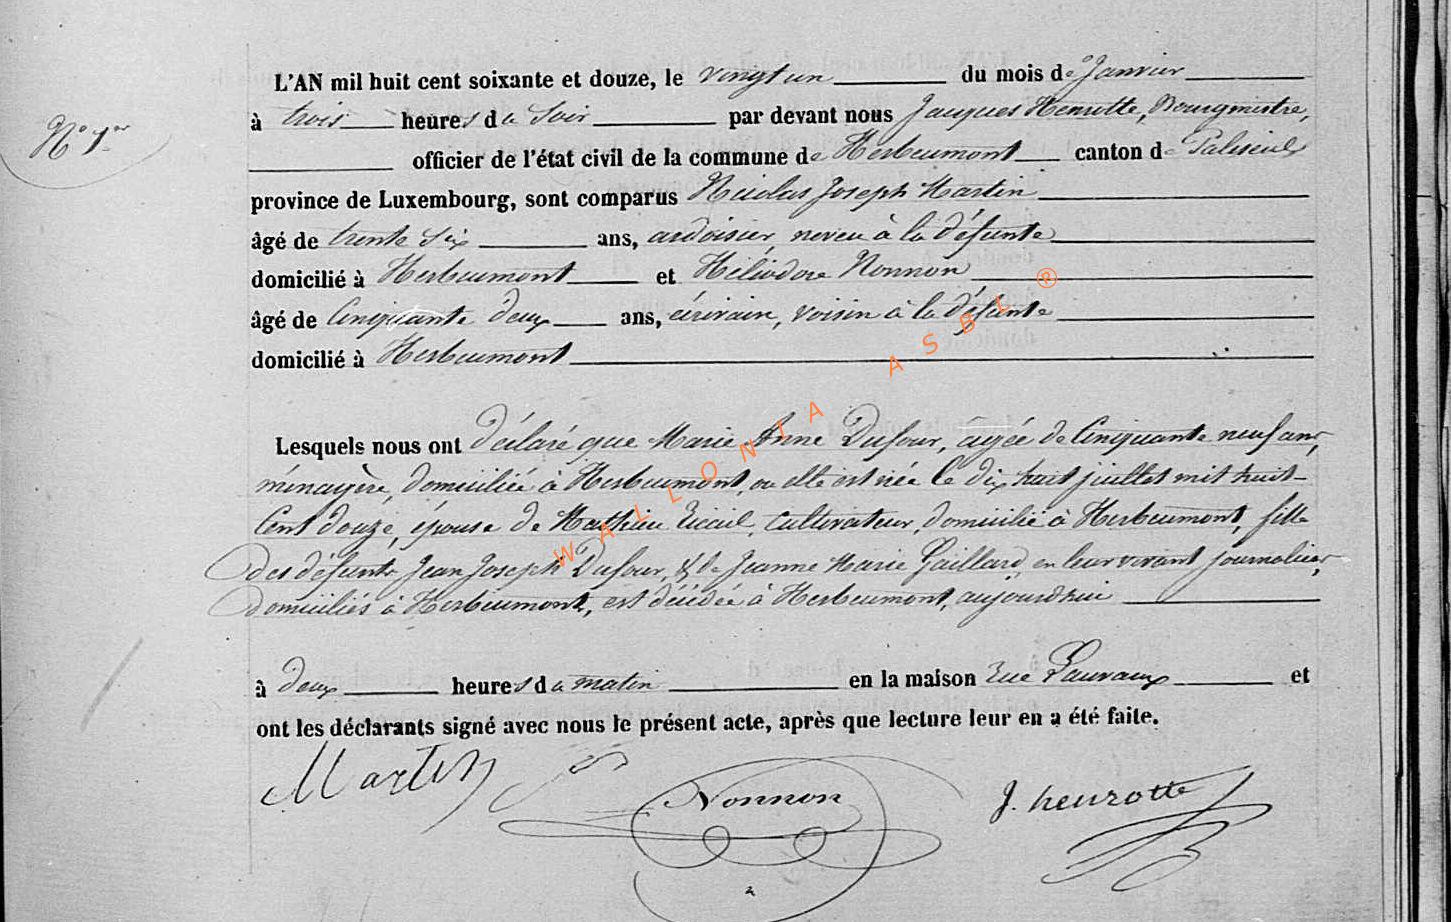 N° 1er
L'AN mil huit cent soixante et douze, le vingt un du mois de Janvier
à trois heures du Soir par devant nous Jacques Henrotte, Bourgmestre,
officier de l'état civil de la commune de Herbeumont canton de Paliseul
province de Luxembourg, sont comparus Nicolas Joseph Martin
âgé de trente Six ans, ardoisier, neveu à la défunte
domicilié à Herbeumont et Héliodore Nonnon
âgé de Cinquante deux ans, écrivain, voisin à la défunte
domicilié à Herbeumont
Lesquels nous ont déclaré que Marie Anne Dufour, agée de Cinquante neuf ans,
ménagère, domiciliée à Herbeumont, ou elle est née le dix huit juillet mil huit
Cent douze, épouse de Mathieu, Cultivateur, domicilié à Herbeumont, fille
des défunts Jean Joseph Dufour, & de Jeanne Marie Gaillard, en leur vivant journalier,
domiciliés à Herbeumont, est décédée à Herbeumont, aujourd'hui
à deux heures du matin en la maison rue et
ont les déclarants signé avec nous le présent acte, après que lecture leur en a été faite.
Martin Nonnon J. henrotte
WALLONIA ASBL ®